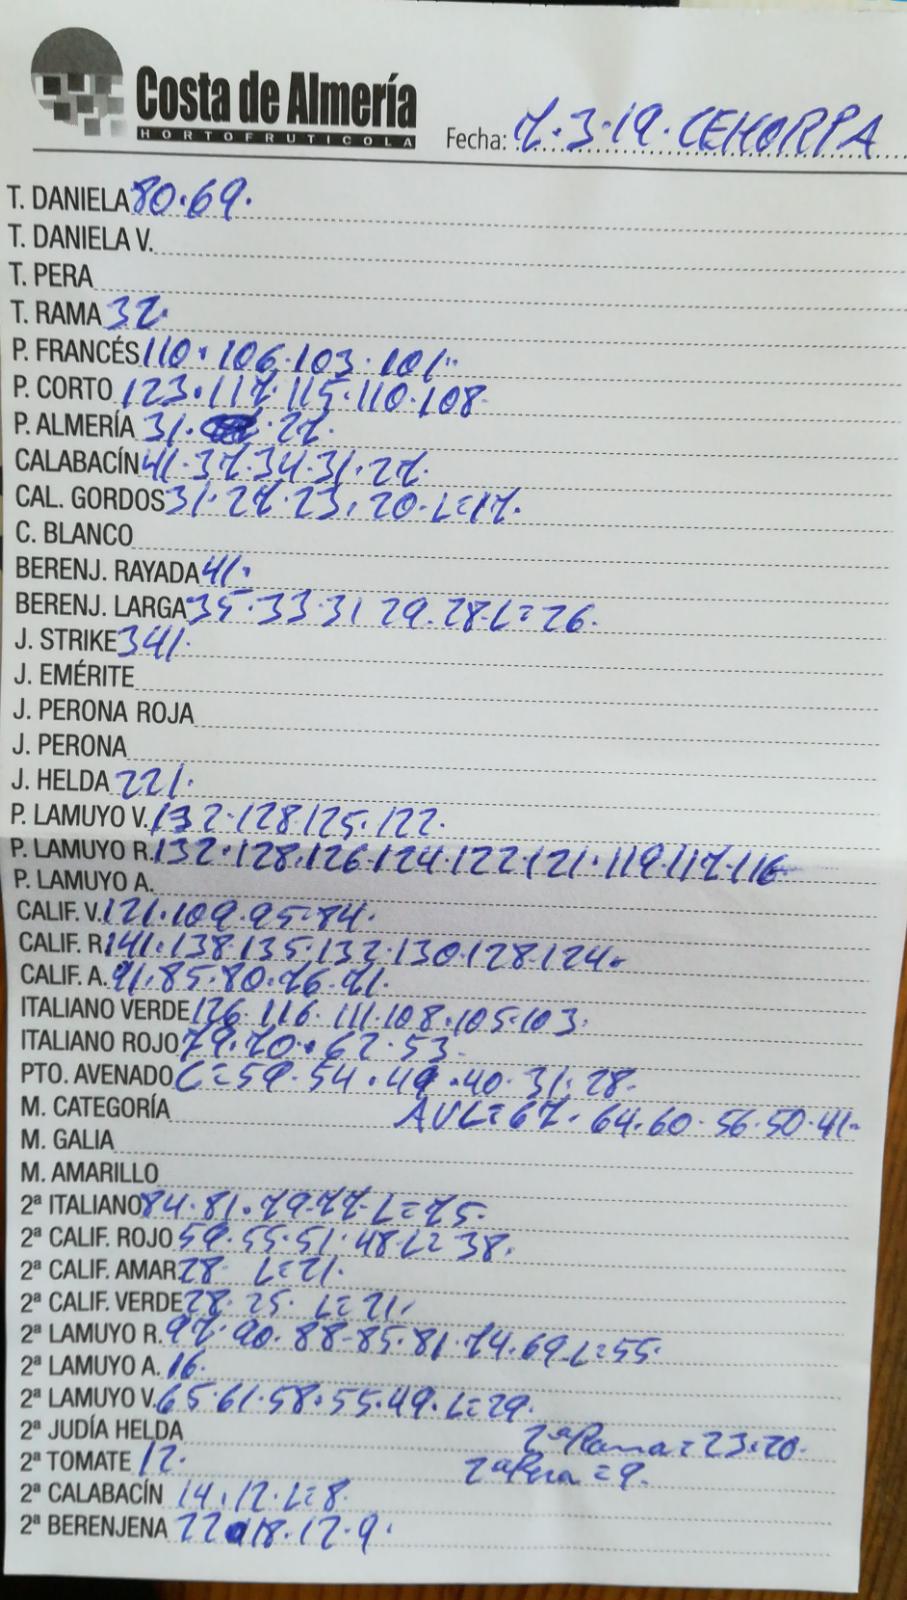 Costa de Almería
HORTOFRUTICOLA
Fecha: 7.3.19. CEHORPA
T. DANIELA 80.69.
T. DANIELA V.
T. PERA
T. RAMA 32.
P. FRANCÉS 110.106.103.101.
P. CORTO 123.117.115.110.108
P. ALMERÍA 31. 27.
CALABACÍN 41.37.34.31.27.
CAL. GORDOS 31.27.23.20.L=17.
C. BLANCO
BERENJ. RAYADA 41.
BERENJ. LARGA 35.33.31 29.28.L=26.
J. STRIKE 341.
J. EMÉRITE
J. PERONA ROJA
J. PERONA
J. HELDA 221.
P. LAMUYO V. 132.128.125.122.
P. LAMUYO R. 132.128.126.124.122.121.119.117.116
P. LAMUYO A.
CALIF. V. 121.109.95.84.
CALIF. R 141.138.135.132.130.128.124.
CALIF. A. 91.85.80.76.71.
ITALIANO VERDE 126 116.111.108.105.103.
ITALIANO ROJO 79.70.62.53.
PTO. AVENADO C=59.54.49.40.31.28.
M. CATEGORÍA AVL=67.64.60.56.50.41.
M. GALIA
M. AMARILLO
2ª ITALIANO 84.81.79.77.L=75.
2ª CALIF. ROJO 59.55.51.48.L=38.
2ª CALIF. AMAR 28 L=21.
2ª CALIF. VERDE 28.25. L=21.
2ª LAMUYO R. 97.90.88.85.81.74.69.L=55.
2ª LAMUYO A. 16.
2ª LAMUYO V. 65.61.58.55.49.L=29.
2ª JUDÍA HELDA 2ª Rama=23.20.
2ª TOMATE 12. 2ª Pera=9.
2ª CALABACÍN 14.12.L=8.
2ª BERENJENA 22.18.12.9.